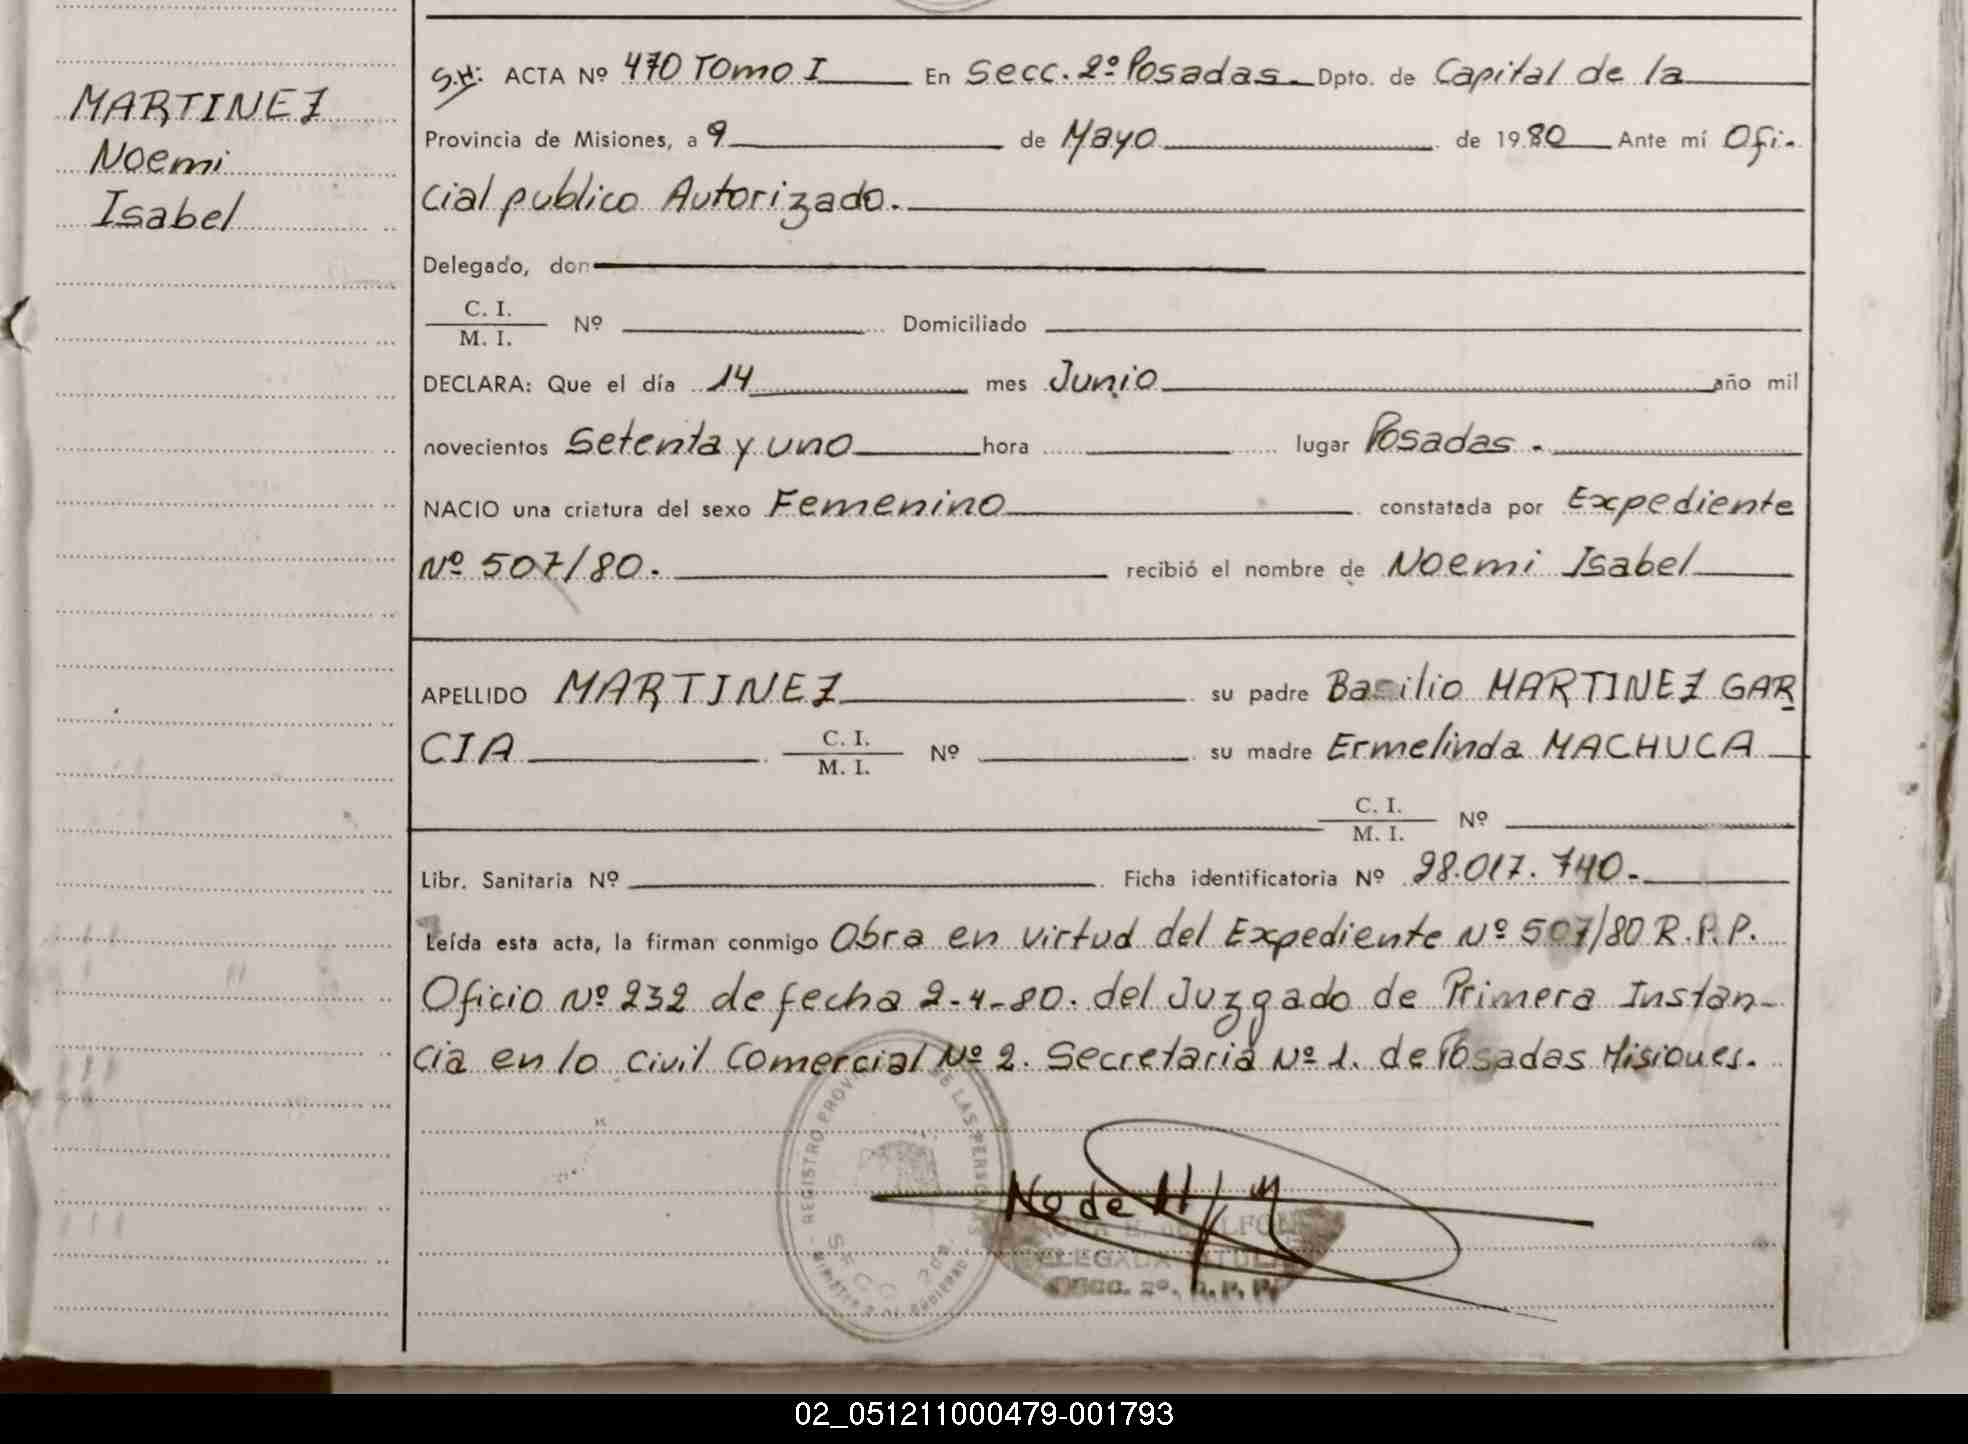 MARTINEZ
Noemi
Isabel
S.H: ACTA Nº 470 Tomo I En Secc. 2º Posadas. Dpto. de Capital de la
Provincia de Misiones, a 9 de Mayo de 1980 Ante mí Ofi-
cial publico Autorizado.
Delegado, don
C. I.
M. I. Nº Domiciliado
DECLARA: Que el día 14 mes Junio año mil
novecientos Setenta y uno hora lugar Posadas.
NACIO una criatura del sexo Femenino constatada por Expediente
Nº 507/80. recibió el nombre de Noemi Isabel
APELLIDO MARTINEZ su padre Basilio MARTINEZ GAR
CIA C. I. M. I. Nº su madre Ermelinda MACHUCA
C. I. M. I. Nº
Libr. Sanitaria Nº Ficha identificatoria Nº 28.017.740.
Leída esta acta, la firman conmigo Obra en virtud del Expediente Nº 507/80 R.P.P.
Oficio Nº 232 de fecha 2-4-80. del Juzgado de Primera Instan-
cia en lo Civil Comercial Nº 2. Secretaria Nº 1. de Posadas Misiones.
REGISTRO PROVINCIAL DE LAS PERSONAS
SECC. 2da.
MINISTERIO DE GOBIERNO
SECC. 2º. R. P. P.
02_051211000479-001793